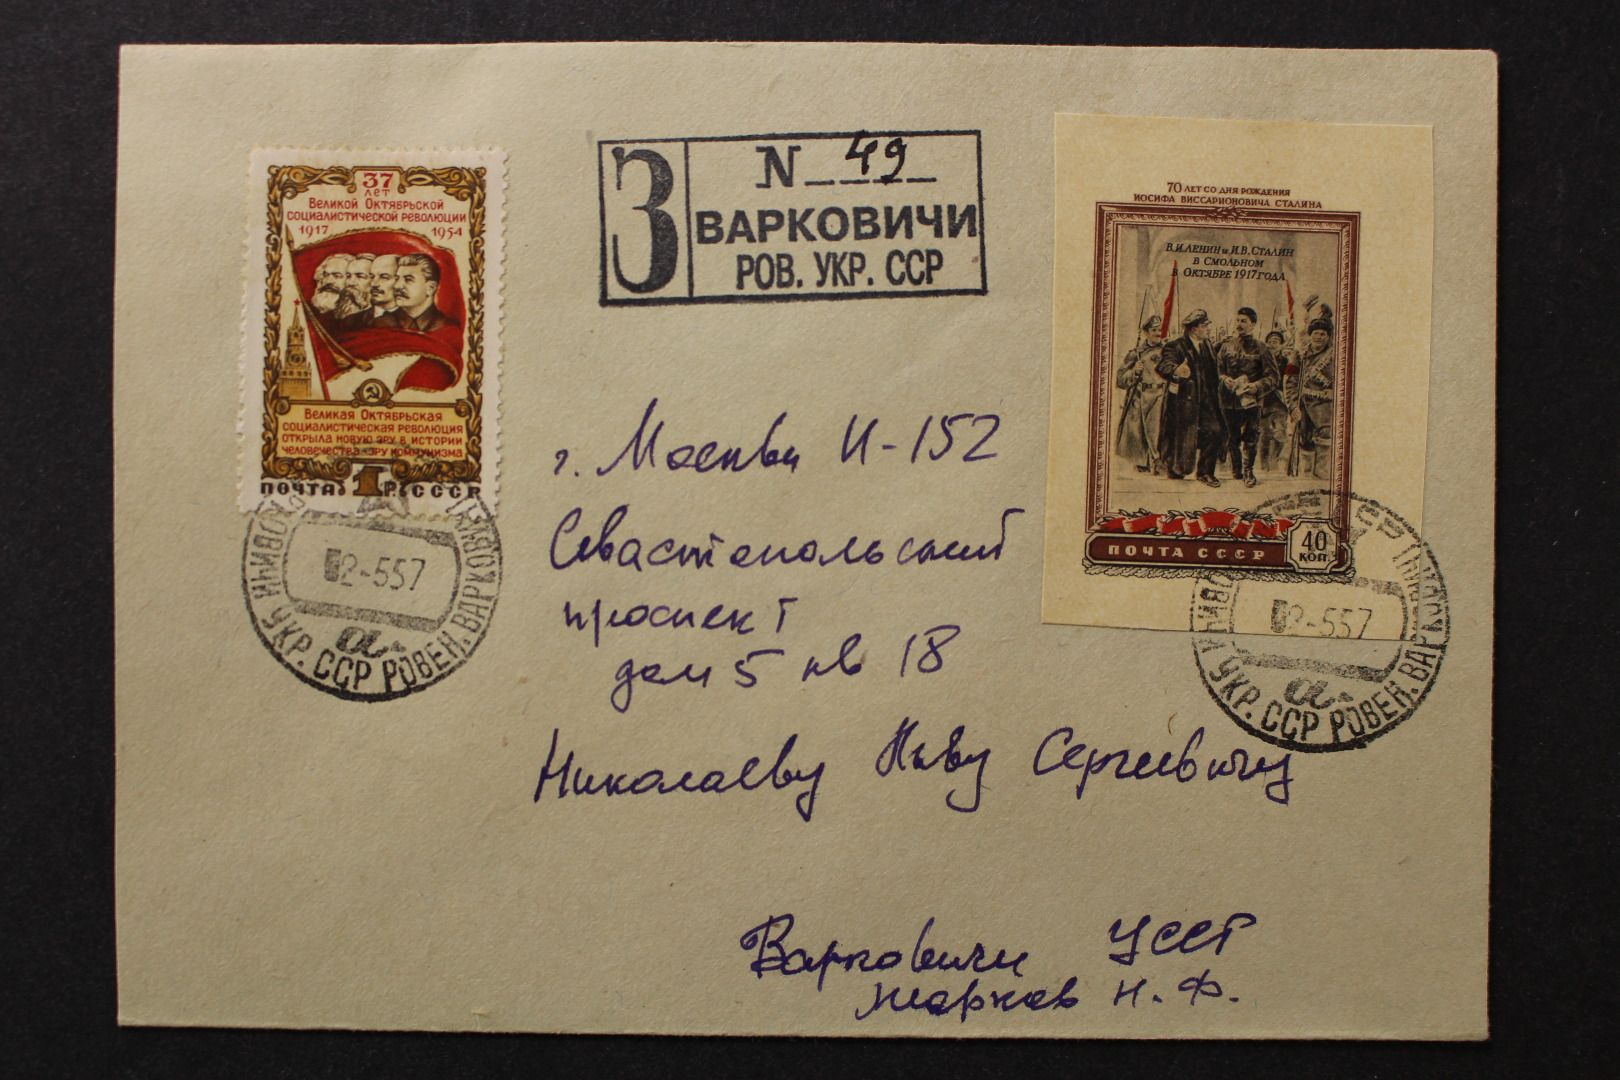 37
ЛЕТ
ВЕЛИКОЙ ОКТЯБРЬСКОЙ
СОЦИАЛИСТИЧЕСКОЙ РЕВОЛЮЦИИ
1917 1954
ВЕЛИКАЯ ОКТЯБРЬСКАЯ
СОЦИАЛИСТИЧЕСКАЯ РЕВОЛЮЦИЯ
ОТКРЫЛА НОВУЮ ЭРУ В ИСТОРИИ
ЧЕЛОВЕЧЕСТВА ЭРУ КОММУНИЗМА
ПОЧТА 1 Р. СССР
З
N 49
ВАРКОВИЧИ
РОВ. УКР. ССР
70 ЛЕТ СО ДНЯ РОЖДЕНИЯ
ИОСИФА ВИССАРИОНОВИЧА СТАЛИНА
В.И.ЛЕНИН и И.В.СТАЛИН
В СМОЛЬНОМ
В ОКТЯБРЕ 1917 ГОДА
ПОЧТА СССР
40
КОП.
2-557
а
УКР. ССР РОВЕН. ВАРКОВИ
2-557
а
УКР. ССР РОВЕН. ВАРКОВИ
г. Москва И-152
Севастопольский
проспект
дом 5 кв 18
Николаеву Льву Сергеевичу
Варковичи УССР
Марков Н.Ф.